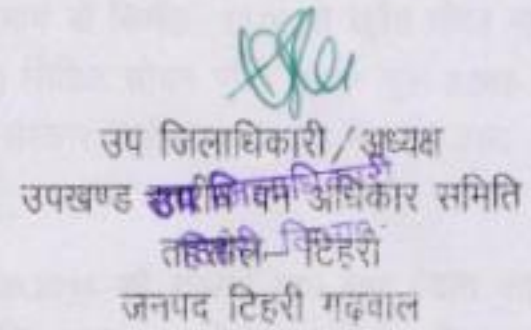 उप जिलाधिकारी/अध्यक्ष
उपखण्ड स्तरीय वन अधिकार समिति
उप जिलाधिकारी
तहसील- टिहरी
जनपद टिहरी गढ़वाल